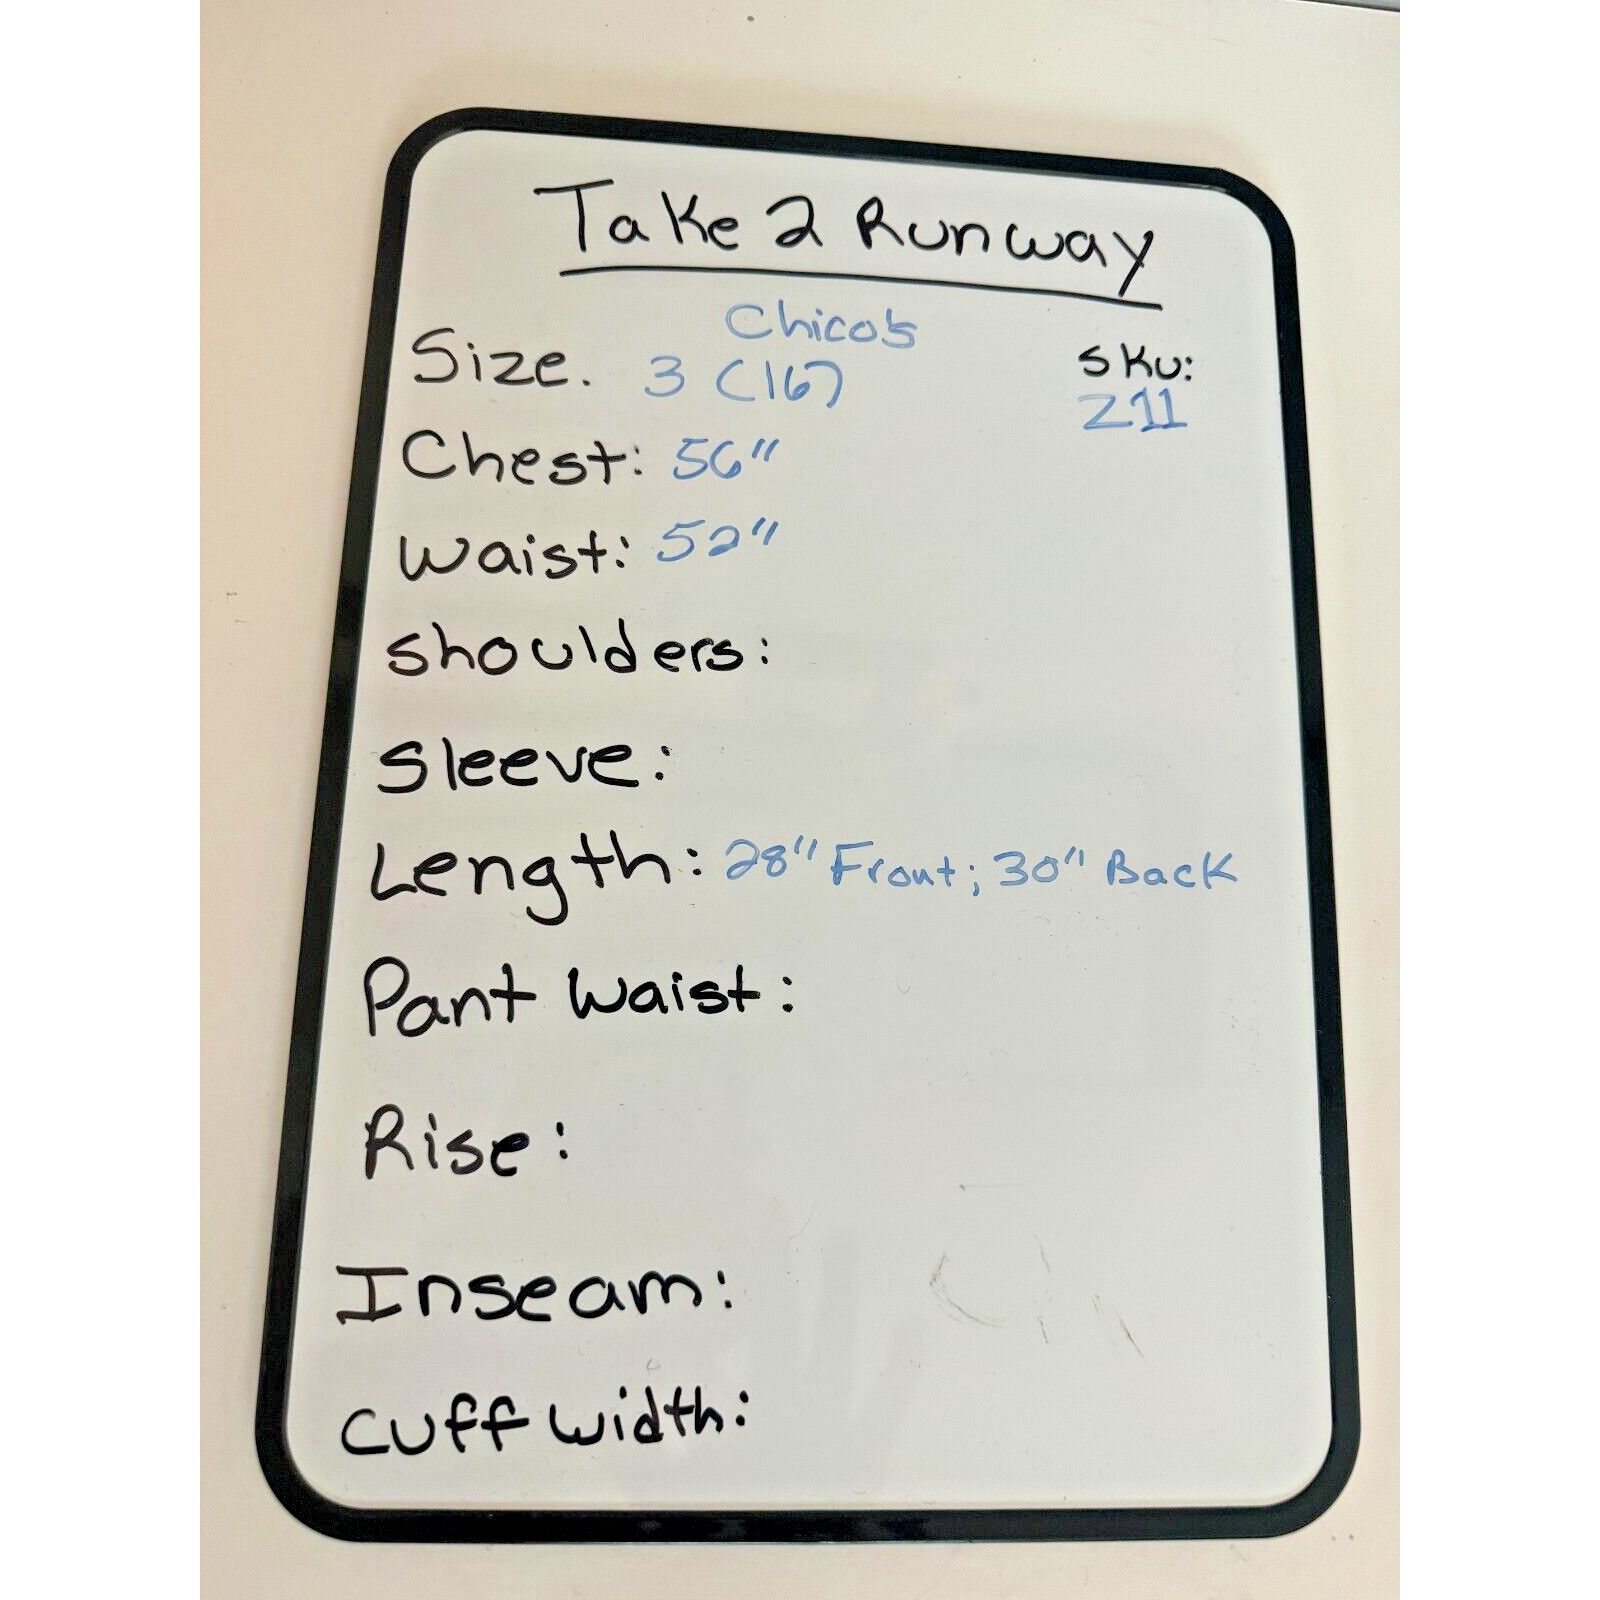 Take 2 Runway
Chico's
Size. 3 (16)
SKU:
Z11
Chest: 56"
Waist: 52"
Shoulders:
Sleeve:
Length: 28" Front; 30" Back
Pant Waist:
Rise:
Inseam:
Cuff width: